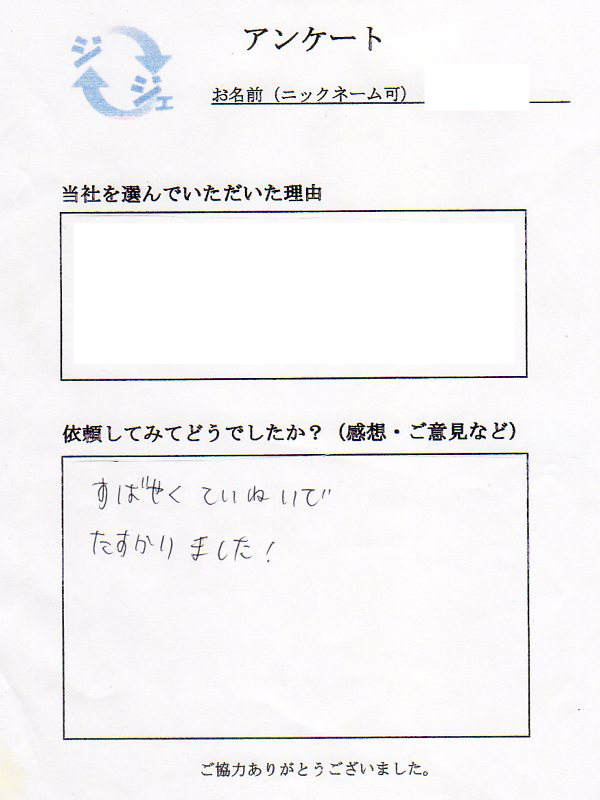 ジジェ
アンケート
お名前（ニックネーム可）
当社を選んでいただいた理由
依頼してみてどうでしたか？（感想・ご意見など）
すばやく ていねいで
たすかりました！
ご協力ありがとうございました。